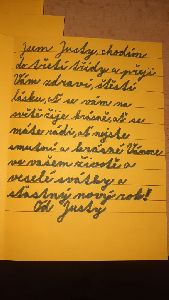 Jsem Justy chodím
do třetí třídy a přeji
Vám zdraví, štěstí
lásku, ať se vám na
světě žije krásně, ať se
máte rádi, ať nejste
smutní a krásné Vánoce
ve vašem životě a
veselé svátky a
šťastný nový rok!
Od Justy